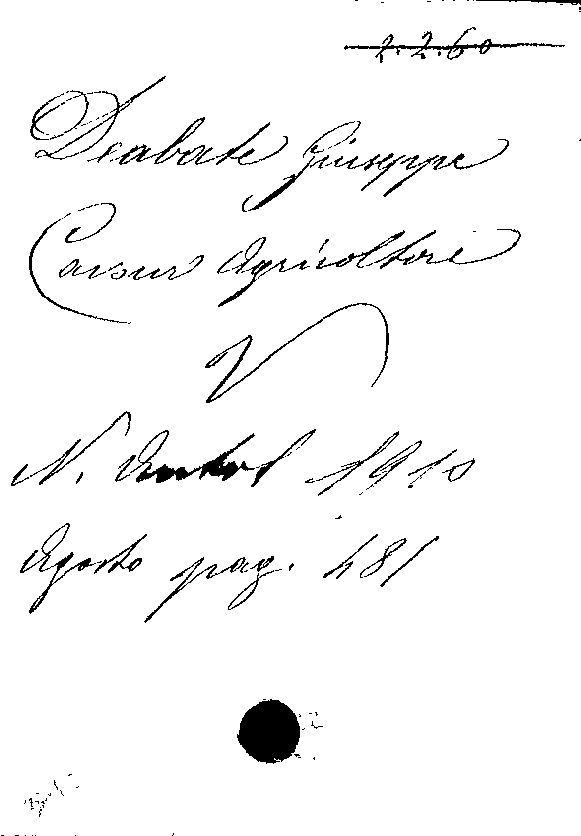 2.2.60
Deabate Giuseppe
Cavour Agricoltore
V
N. Antol 1910
Agosto pag. 481